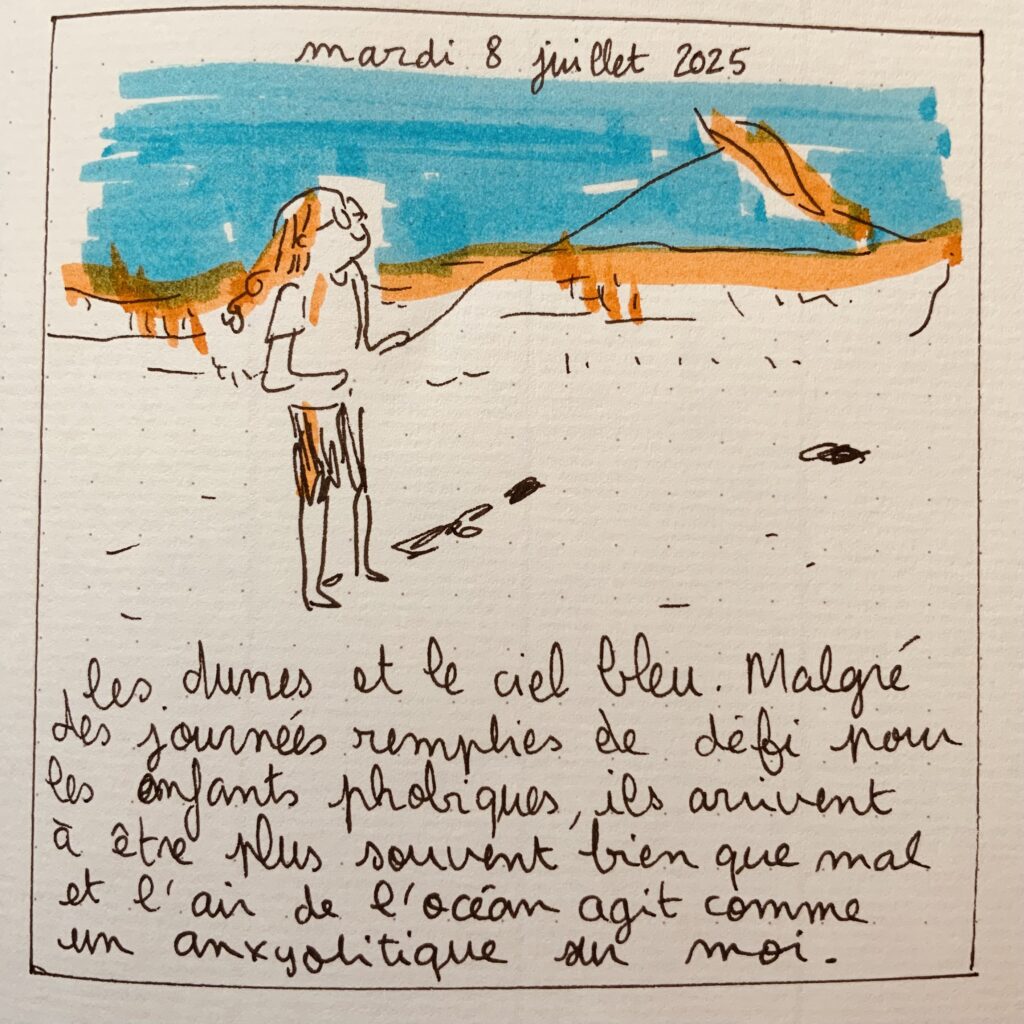 mardi 8 juillet 2025
les dunes et le ciel bleu. Malgré
des journées remplies de défi pour
les enfants phobiques, ils arrivent
à être plus souvent bien que mal
et l'air de l'océan agit comme
un anxyolitique sur moi.